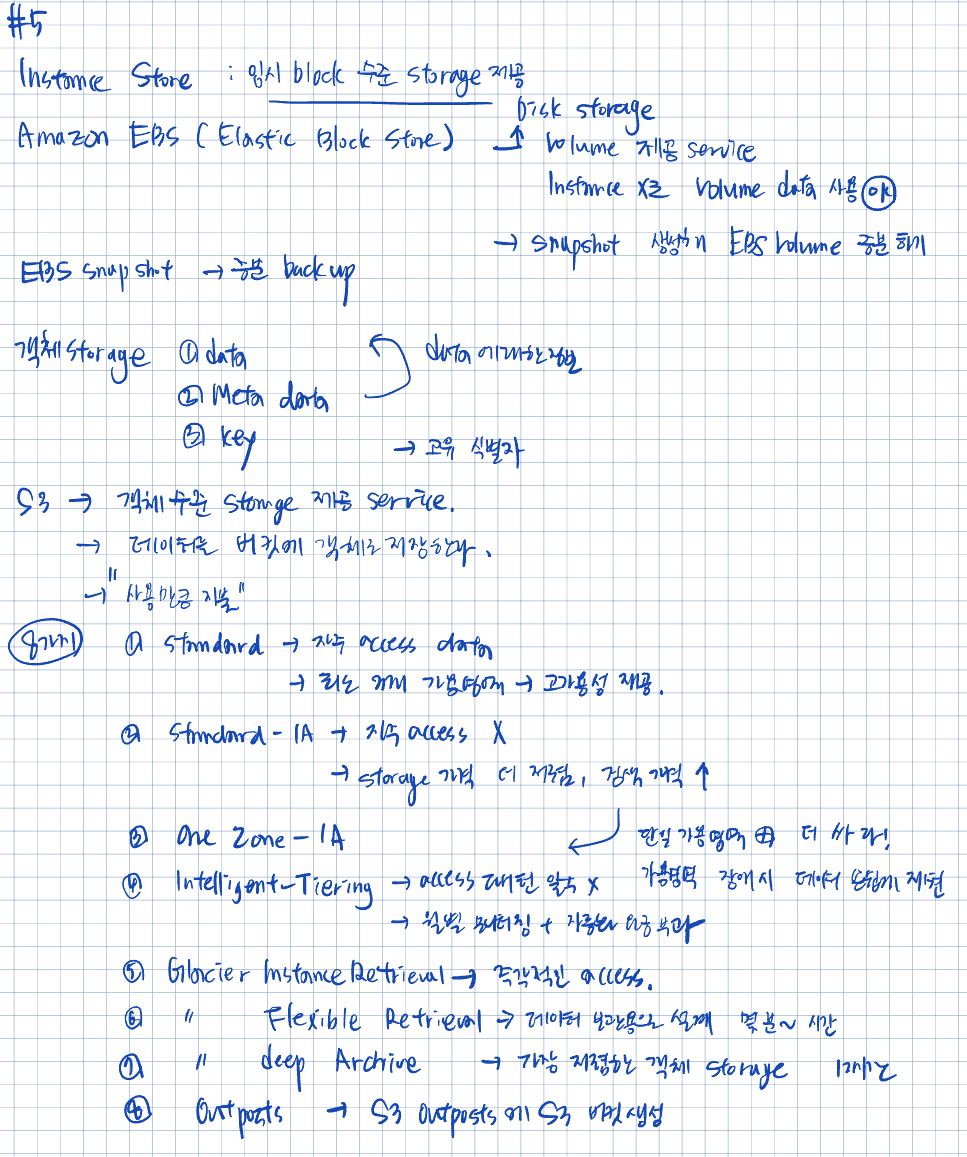 #5
Instance Store : 임시 block 수준 storage 제공
Disk storage
Amazon EBS (Elastic Block Store) → Volume 제공 service
Instance X로 volume data 사용 OK
→ snapshot 생성하여 EBS volume 증분하기
EBS snapshot → 증분 backup
객체 storage ① data data에 대한 정보
② Meta data
③ key → 고유 식별자
S3 → 객체 수준 storage 제공 service.
→ 데이터를 버킷에 객체로 저장한다.
→ "사용만큼 지불"
8가지 ① standard → 자주 access data
→ 최소 3개 가용영역 → 고가용성 제공.
② standard - IA → 자주 access X
→ storage 가격 더 저렴, 검색 가격 ↑
③ One Zone - IA 단일 가용영역 더 싸다!
④ Intelligent-Tiering → access 패턴 알수 X 가용영역 장애시 데이터 손쉽게 재현
→ 월별 모니터링 + 자동화 요금 부과
⑤ Glacier Instance Retrieval → 즉각적인 access.
⑥ " Flexible Retrieval → 데이터 보관용으로 설계 몇분~ 시간
⑦ " deep Archive → 가장 저렴한 객체 storage 12시간
⑧ Outposts → S3 outposts에 S3 버킷 생성